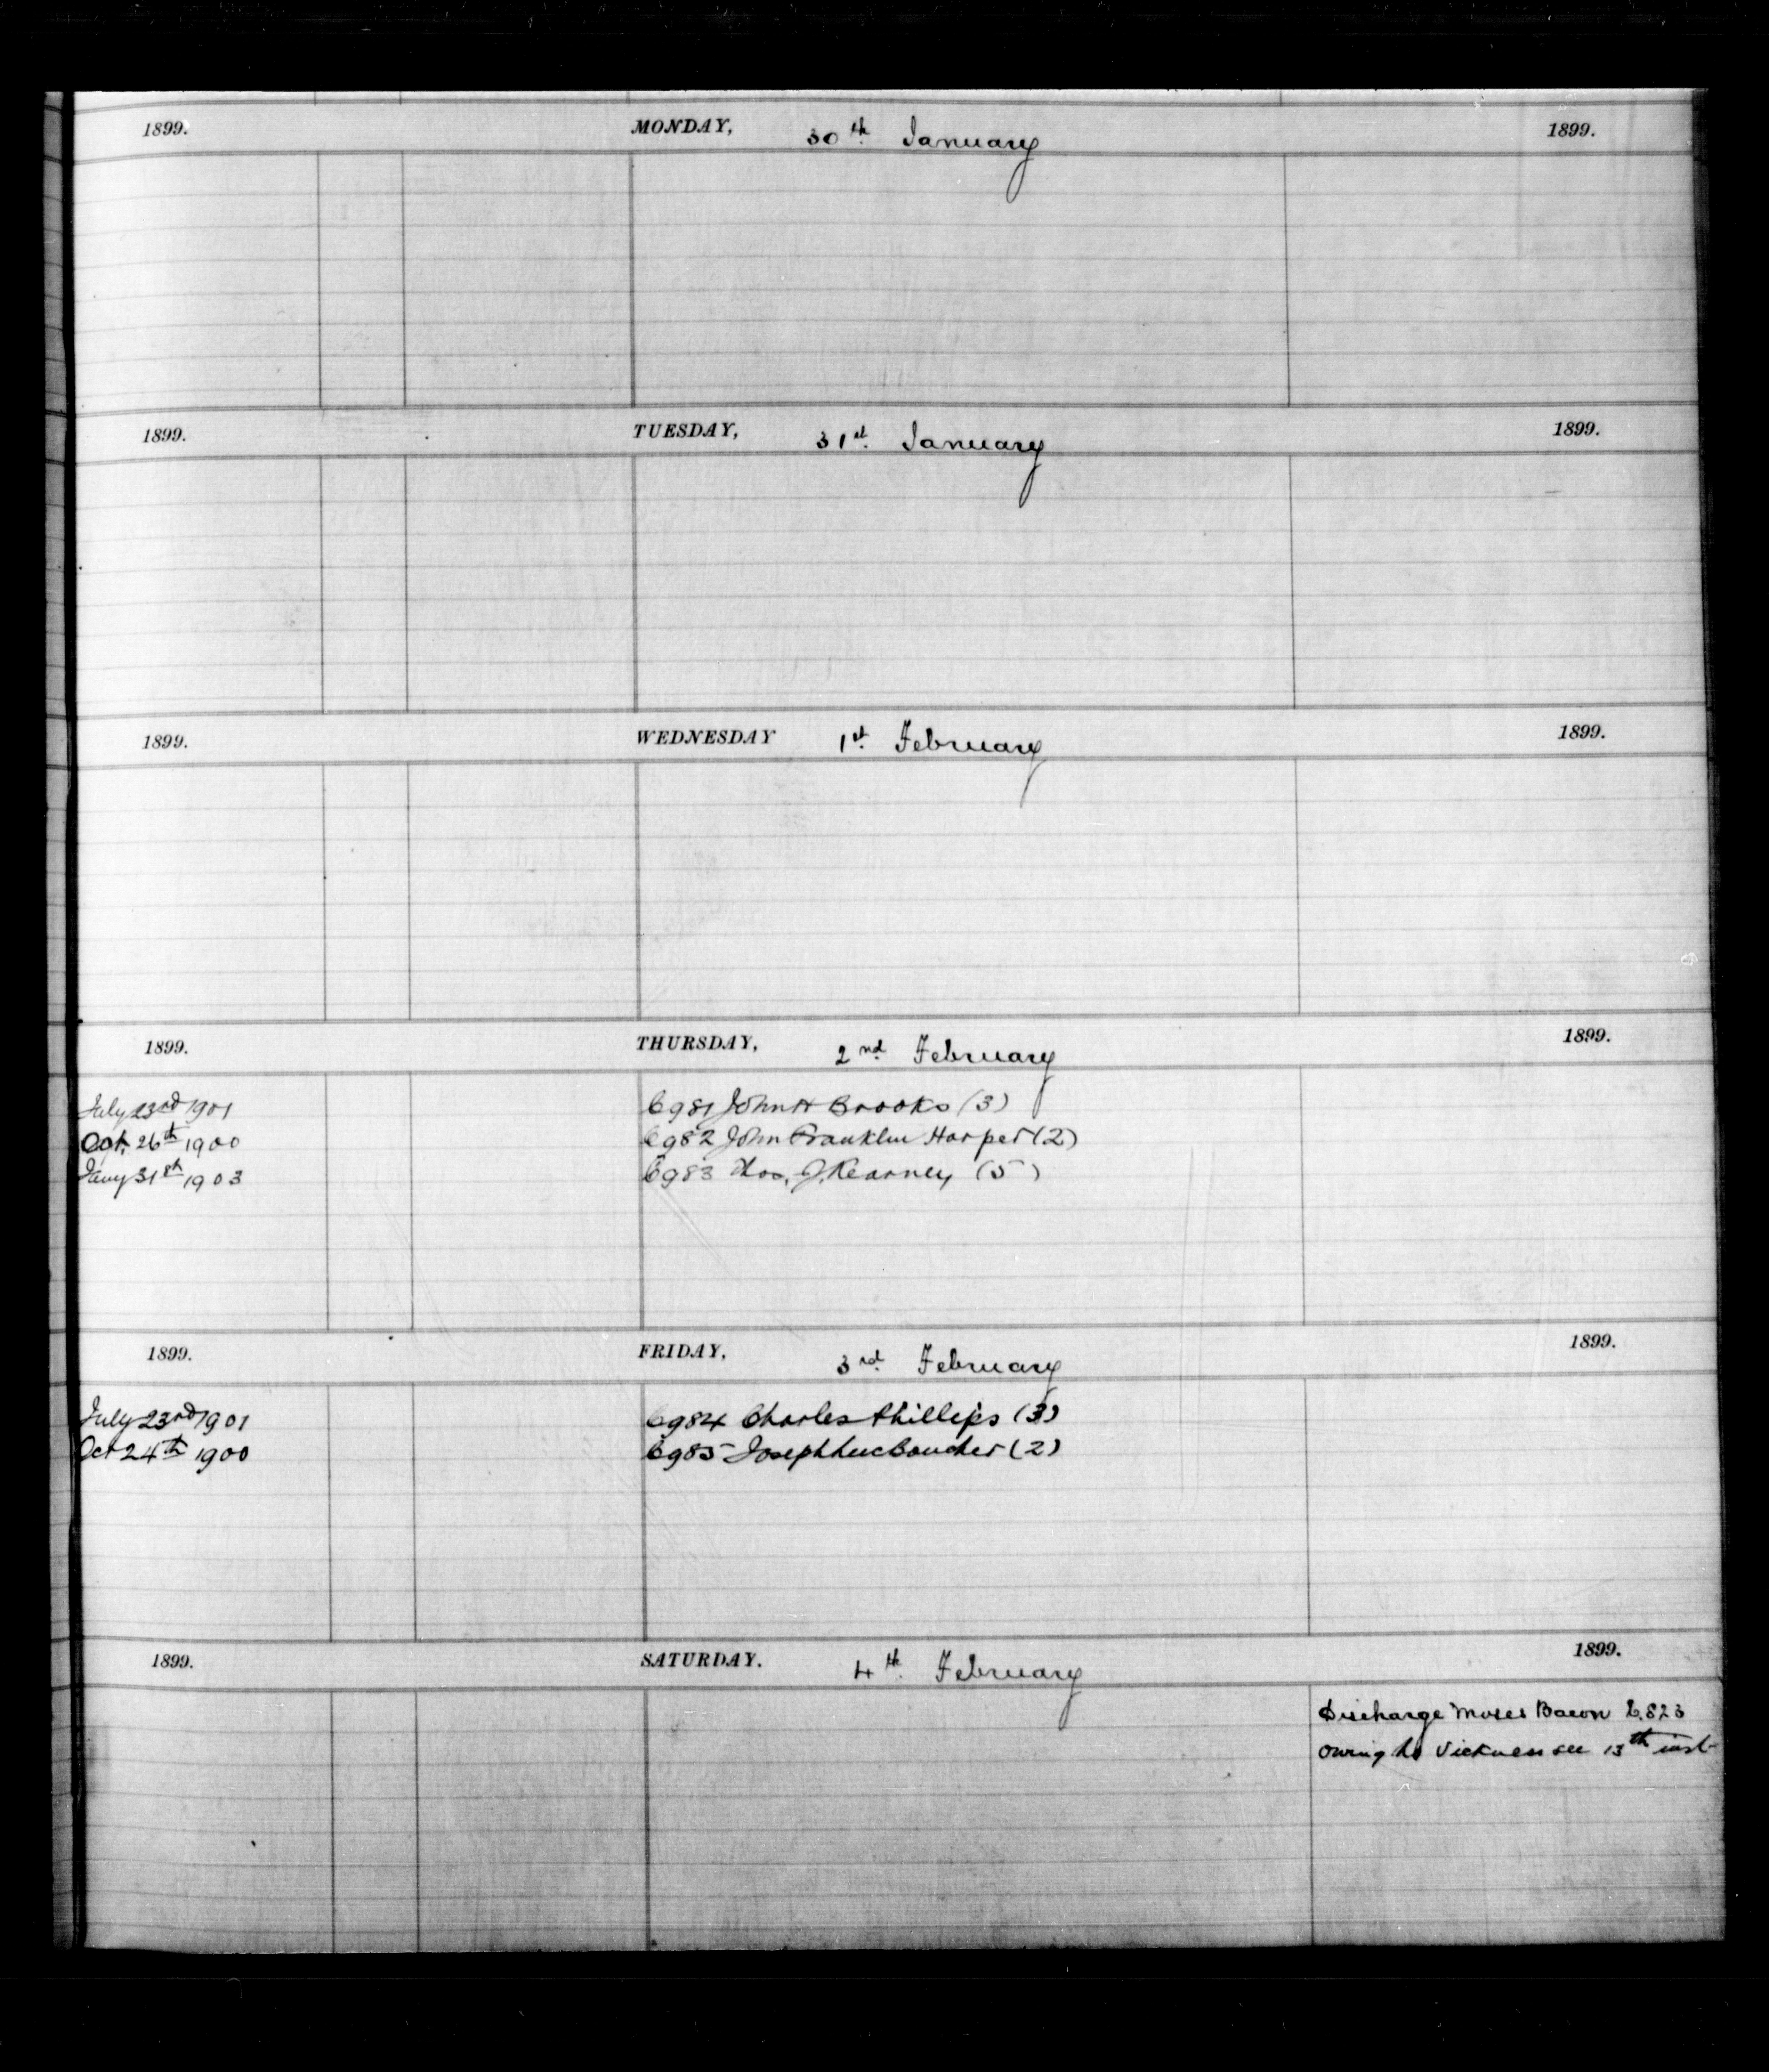 1899. MONDAY, 30th January 1899.
1899. TUESDAY, 31st January 1899.
1899. WEDNESDAY 1st February 1899.
1899. THURSDAY, 2nd February 1899.
July 23rd 1901 6981 John H Brooks (3)
Oct. 26th 1900 6982 John Franklin Harper (2)
Jany 31st 1903 6983 Thos. J. Kearney (5)
1899. FRIDAY, 3rd February 1899.
July 23rd 1901 6984 Charles Phillips (3)
Oct 24th 1900 6985 Joseph Luc Boucher (2)
1899. SATURDAY. 4th February 1899.
Discharge Moses Bacon 6.823
owing to Sickness see 13th inst